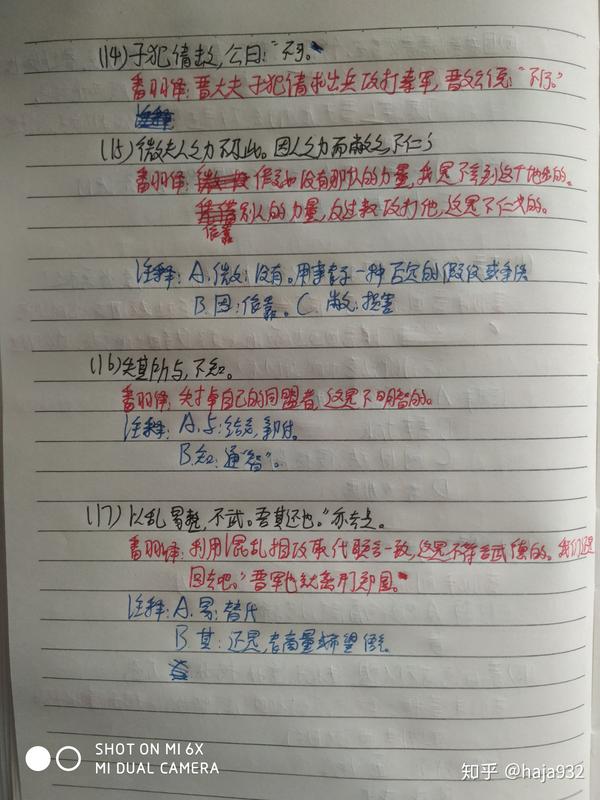 (14)子犯请击,公曰:“不可。
番羽译:晋大夫子犯请求出兵攻打秦军,晋文公说:“不行。”
注释
(15)微夫人之力不及此。因人之力而敝之,不仁;
番羽译: 假如没有那人的力量,我是不会到这个地步的。
别人的力量,反过教攻打他,这是不仁义的。
倍靠
注释:A.微:没有。用事 于一种否定的假设或条件
B.因:倍靠。C.敝:损害
(16)失其所与,不知。
番羽译:失掉自己的同盟者,这是不明智的。
注释:A.与:结交,亲附。
B.知:通“智”。
(17)以乱易整,不武。吾其还也。”亦去之。
番羽译:利用混乱相攻取代联合一致,这是不符合武德的。我们还是
回去吧。”晋军也就离开郑国。
注释:A.易:替代
B其:还是,表商量或希望语气
SHOT ON MI 6X
MI DUAL CAMERA
知乎 @haja932